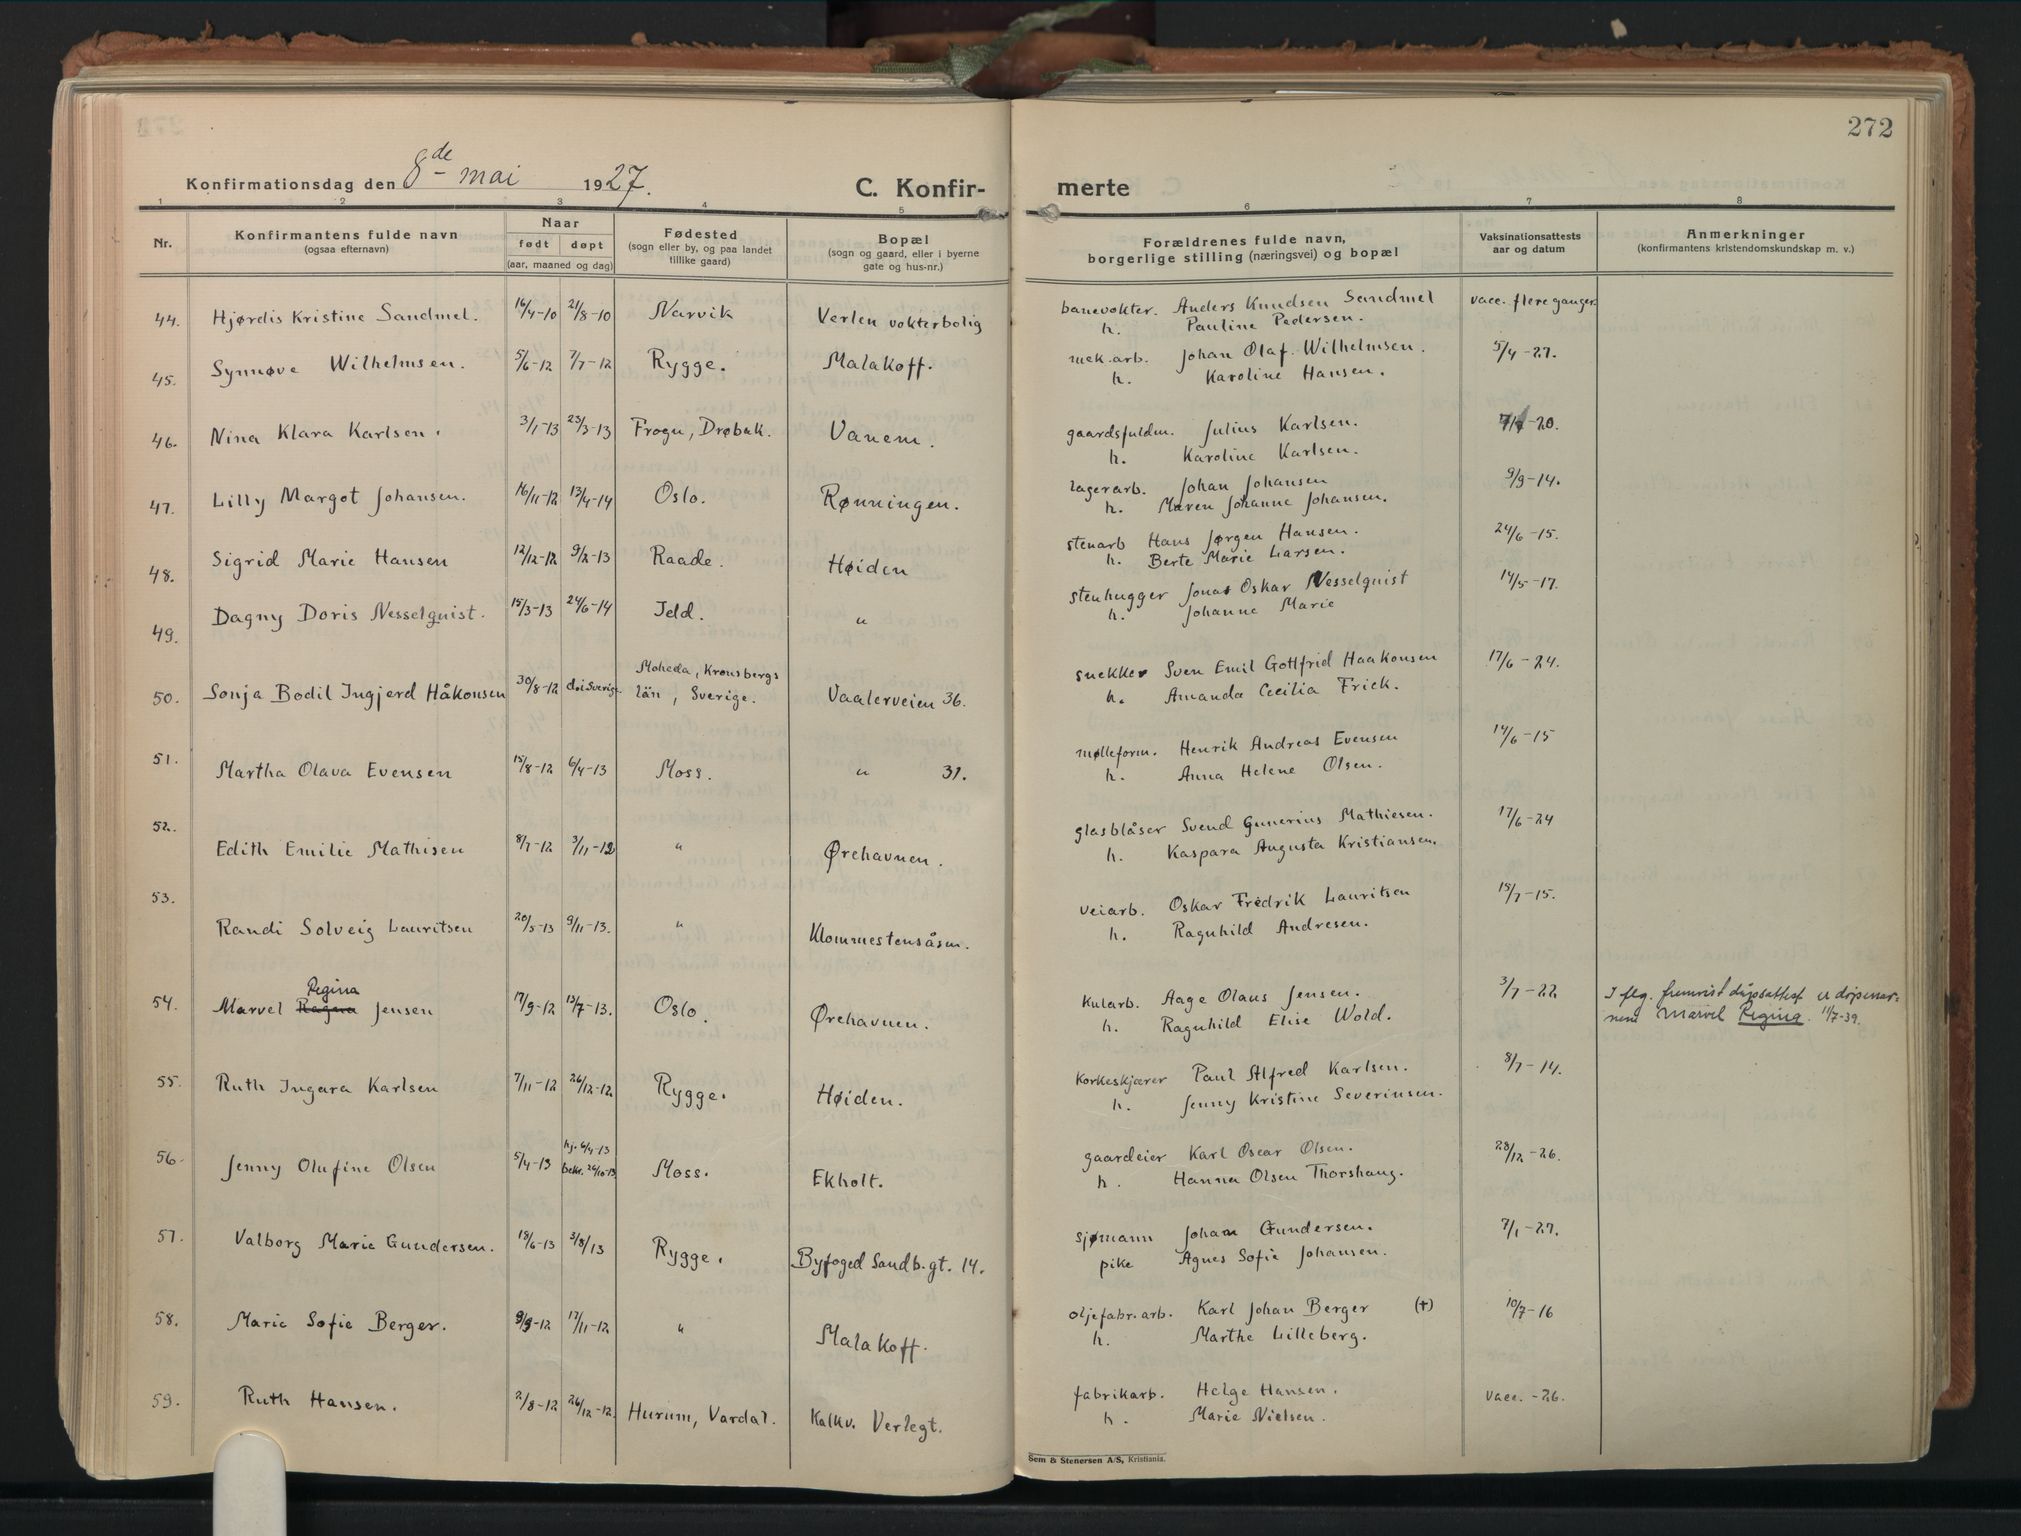 272
Konfirmationsdag den 8de mai 1927.
C. Konfir-
merte
1 2 3 4 5 6 7 8
Nr.
Konfirmantens fulde navn
(ogsaa efternavn)
Naar
født døpt
(aar, maaned og dag)
Fødested
(sogn eller by, og paa landet
tillike gaard)
Bopæl
(sogn og gaard, eller i byerne
gate og hus-nr.)
Forældrenes fulde navn,
borgerlige stilling (næringsvei) og bopæl
Vaksinationsattests
aar og datum
Anmerkninger
(konfirmantens kristendomskundskap m. v.)
44. Hjørdis Kristine Sandmel. 16/4-10 21/8-10 Narvik Verlen vokterbolig banevokter. Anders Knudsen Sandmel vacc. flere ganger.
h. Pauline Pedersen.
45. Synnøve Wilhelmsen. 5/6-12 7/7-12 Rygge. Malakoff. mek.arb. Johan Olaf Wilhelmsen. 5/4-27.
h. Karoline Hansen.
46. Nina Klara Karlsen. 3/1-13 23/3-13 Frogn, Drøbak. Vanem. gaardsfuldm. Julius Karlsen. -20.
h. Karoline Karlsen.
47. Lilly Margot Johansen. 16/11-12 13/4-14 Oslo. Rønningen. lagerarb. Johan Johansen 9/9-14.
h. Maren Johanne Johansen.
48. Sigrid Marie Hansen 12/12-12 9/2-13 Raade. Høiden stenarb Hans Jørgen Hansen. 24/6-15.
h. Berte Marie Larsen.
49. Dagny Doris Nesselquist. 15/3-13 24/6-14 Jeld. " stenhugger Jonas Oskar Nesselquist 14/5-17.
h. Johanne Marie
50. Sonja Bodil Ingjerd Håkonsen 30/8-12 d.i Sverige Moheda, Kronsbergs
län, Sverige. Vaalerveien 36. snekker Sven Emil Gottfrid Haakonsen 17/6-24.
h. Amanda Cecilia Frick.
51. Martha Olava Evensen 15/8-12 6/4-13 Moss. " 31. mølleform. Henrik Andreas Evensen 14/6-15
h. Anna Helene Olsen.
52. Edith Emilie Mathisen 8/7-12 3/11-12 " Ørehavnen. glasblåser Svend Gunerius Mathiesen. 17/6-24
h. Kaspara Augusta Kristiansen.
53. Randi Solveig Lauritsen 20/5-13 9/11-13. " Klommestensåsen. veiarb. Oskar Fredrik Lauritsen 15/7-15.
h. Ragnhild Andresen.
Regina
54. Marvel Ragna Jensen 17/9-12 13/7-13. Oslo. Ørehavnen. kularb. Aage Olaus Jensen. 3/7-22 I flg. fremvist dåpsattest er døpenav-
h. Ragnhild Elise Wold. nene Marvel Regina. 11/7-39.
55. Ruth Ingara Karlsen 7/11-12 26/12-12. Rygge. Høiden. korkeskjærer Paul Alfred Karlsen. 8/7-14.
h. Jenny Kristine Severinsen.
56. Jenny Olufine Olsen 5/4-13 hj. 6/4-13
bekr. 26/10-13 Moss. Ekholt. gaardeier Karl Oscar Olsen. 28/12-26.
h. Hanna Olsen Thorshaug.
57. Valborg Marie Gundersen. 18/6-13 3/8/13 Rygge. Byfoged Sandb.gt. 14. sjømann Johan Gundersen. 7/1-27.
pike Agnes Sofie Johansen.
58. Marie Sofie Berger. 9/9-12 17/11-12 " Malakoff. oljefabr.arb. Karl Johan Berger (†) 10/7-16
h. Marthe Lilleberg.
59. Ruth Hansen. 2/8-12 26/12-12. Hurum, Vardal. Kalkv. Verlegt. fabrikarb. Helge Hansen. vacc.-26.
h. Marie Nielsen.
Sem & Stenersen A/S, Kristiania.